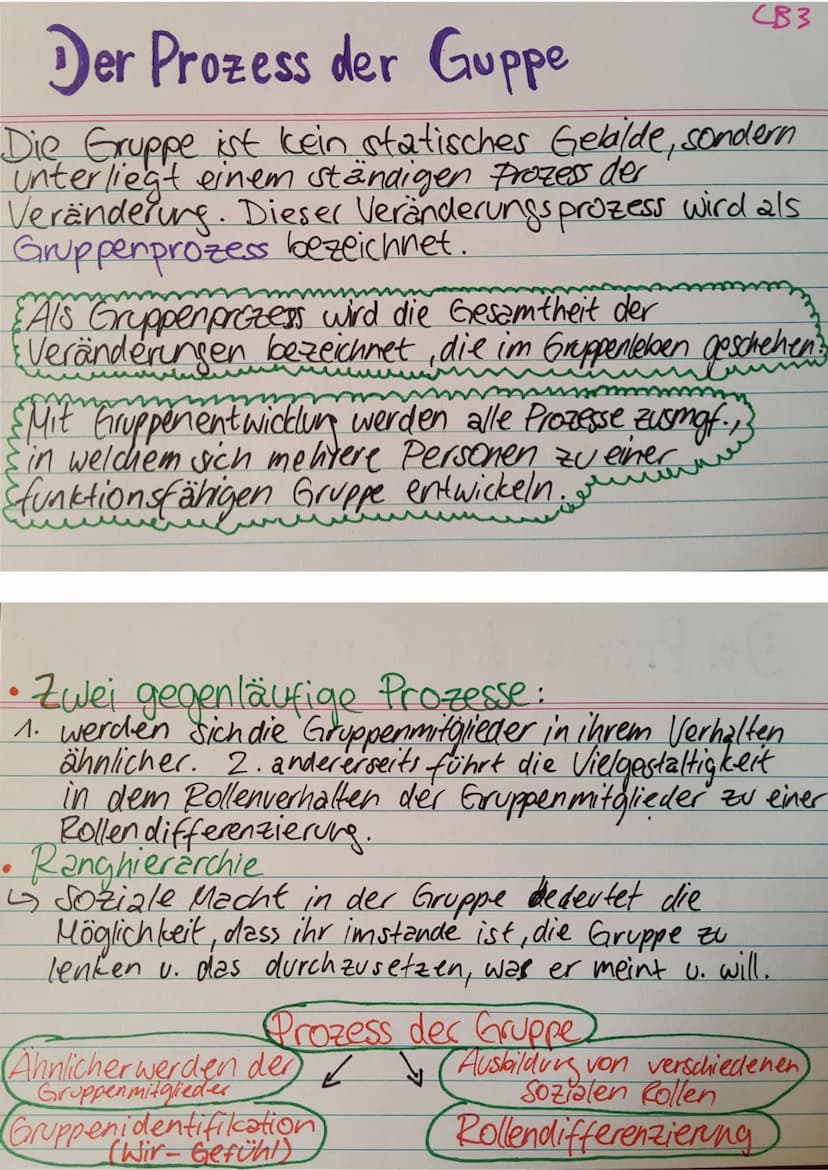 CB3
Der Prozess der Guppe
Die Gruppe ist kein statisches Gebilde, sondern
unterliegt einem ständigen Prozess der
Veränderung. Dieser Veränderungsprozess wird als
Gruppenprozess bezeichnet.
Als Gruppenprozess wird die Gesamtheit der
Veränderungen bezeichnet, die im Gruppenleben geschehen.
Mit Gruppenentwicklung werden alle Prozesse zusmgf.,
in welchem sich mehrere Personen zu einer
funktionsfähigen Gruppe entwickeln.
• Zwei gegenläufige Prozesse:
1. werden sich die Gruppenmitglieder in ihrem Verhalten
ähnlicher. 2. andererseits führt die Vielgestaltigkeit
in dem Rollenverhalten der Gruppenmitglieder zu einer
Rollendifferenzierung.
• Ranghierarchie
↳ Soziale Macht in der Gruppe bedeutet die
Möglichkeit, dass ihr imstande ist, die Gruppe zu
lenken u. das durchzusetzen, was er meint u. will.
Prozess der Gruppe
Ähnlicher werden der
Gruppenmitglieder
Ausbildung von verschiedenen
sozialen Rollen
Gruppenidentifikation
(Wir-Gefühl)
Rollendifferenzierung